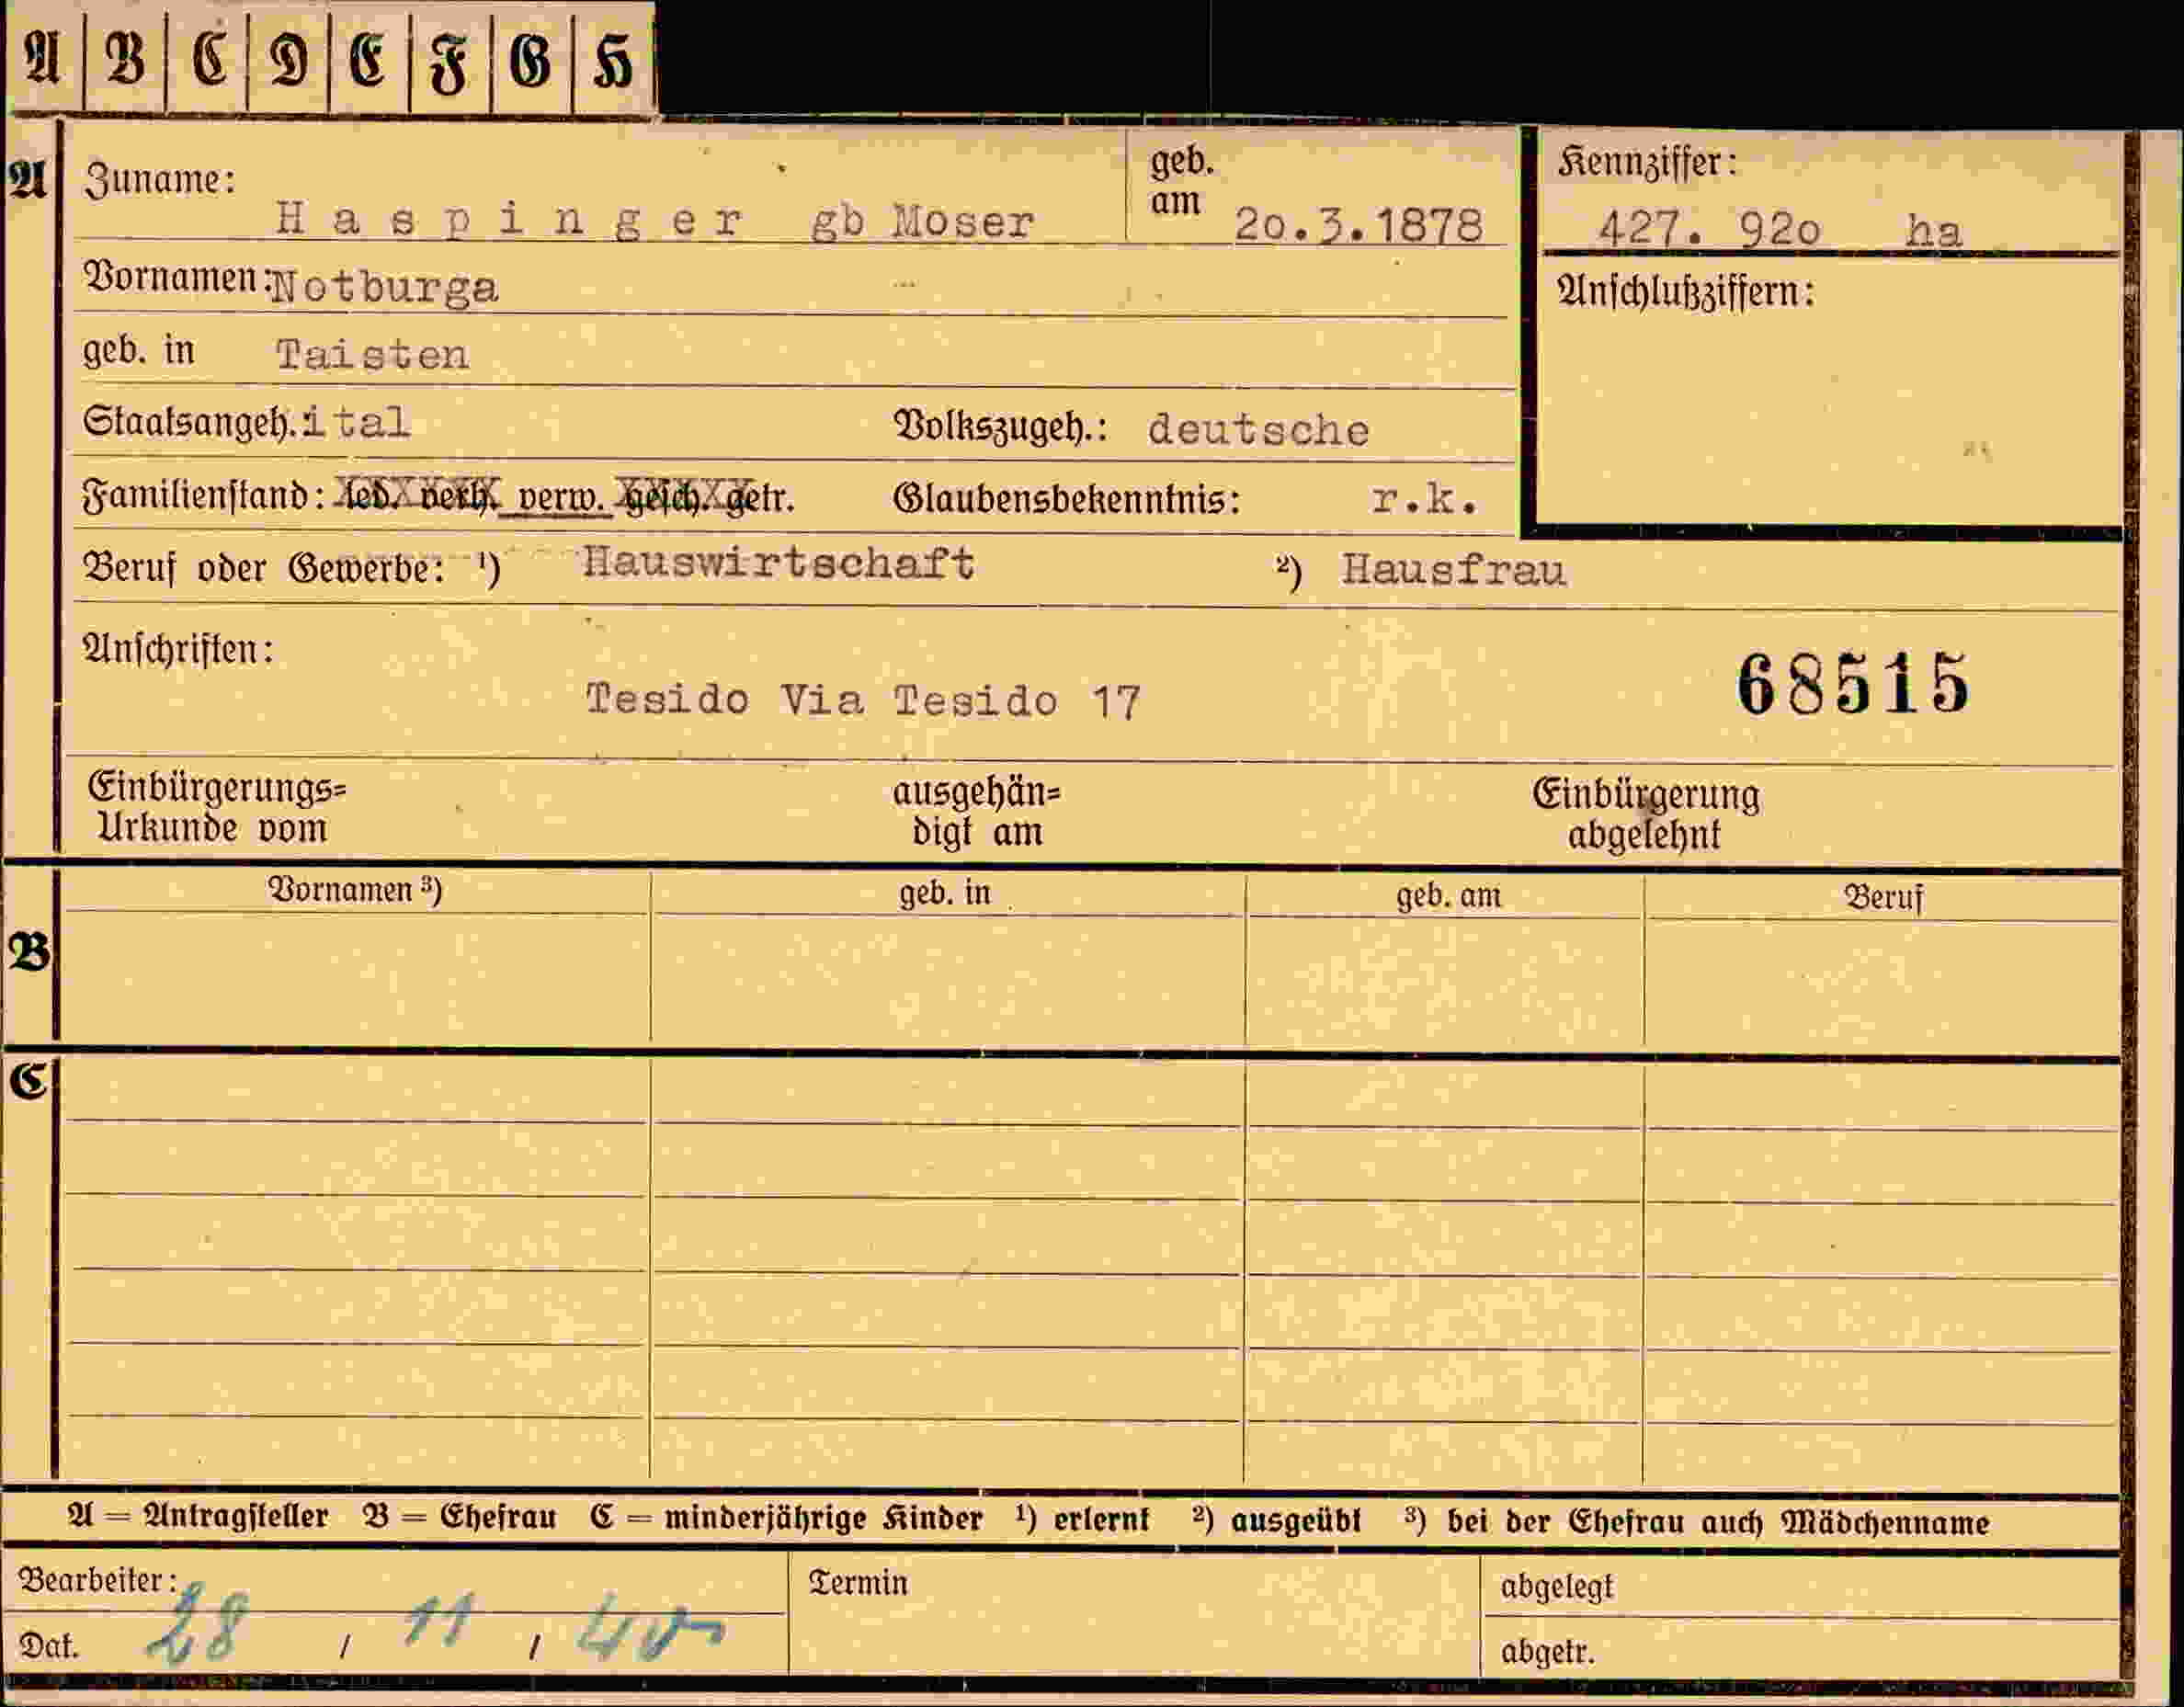 A B C D E F G H
A Zuname: Haspinger gb Moser geb. am 20.3.1878 Kennziffer: 427. 920 ha
Vornamen: Notburga Anschlußziffern:
geb. in Taisten
Staatsangeh. ital Volkszugeh.: deutsche
Familienstand: led. verh. verw. gesch. getr. Glaubensbekenntnis: r.k.
Beruf oder Gewerbe: ¹) Hauswirtschaft ²) Hausfrau
Anschriften:
Tesido Via Tesido 17 68515
Einbürgerungs= ausgehän= Einbürgerung
Urkunde vom digt am abgelehnt
Vornamen ³) geb. in geb. am Beruf
B
C
A = Antragsteller B = Ehefrau C = minderjährige Kinder ¹) erlernt ²) ausgeübt ³) bei der Ehefrau auch Mädchenname
Bearbeiter: Termin abgelegt
Dat. 28 / 11 / 40 abgetr.